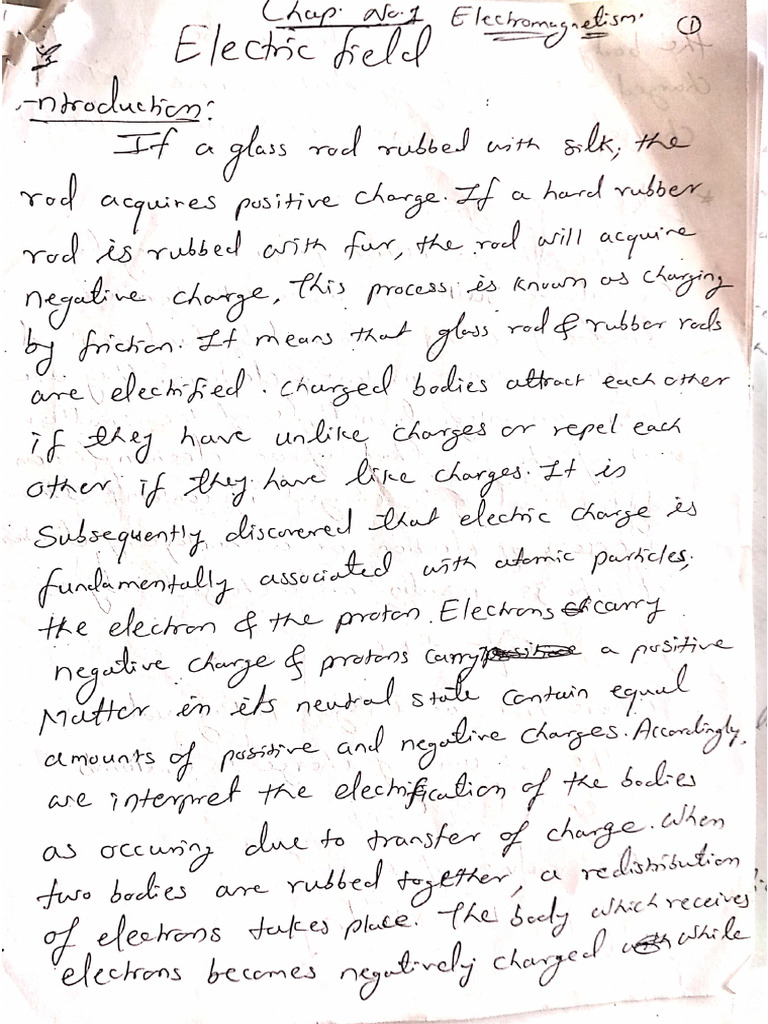 Chap. No.1 Electromagnetism. ①
Electric field
Introduction:
If a glass rod rubbed with silk, the
rod acquires positive charge. If a hard rubber
rod is rubbed with fur, the rod will acquire
negative charge, this process is known as charging
by friction. It means that glass rod & rubber rods
are electrified. Charged bodies attract each other
if they have unlike charges or repel each
other if they have like charges. It is
Subsequently discovered that electric charge is
fundamentally associated with atomic particles,
the electron & the proton. Electrons carry
negative charge & protons carry a positive
Matter in its neutral state contain equal
amounts of positive and negative charges. Accordingly,
are interpret the electrification of the bodies
as occuring due to transfer of charge. When
two bodies are rubbed together, a redistribution
of electrons takes place. The body which receives
electrons becomes negatively charged while